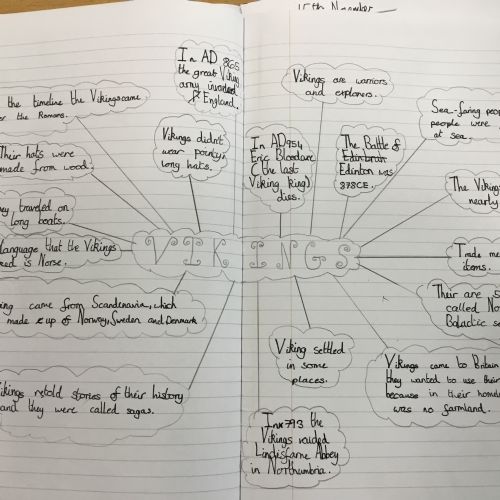 15th November
In AD 865
the great Viking
army invaded
England.
the timeline the Vikings came
the Romans.
Vikings didn't
wear pointy,
long hats.
Their hats were
made from wood.
they traveled on
long boats.
language that the Vikings
is Norse.
came from Scandinavia, which
made up of Norway, Sweden and Denmark
Vikings retold stories of their history
and they were called sagas.
VIKINGS
Vikings are warriors
and explorers.
In AD 954
Eric Bloodaxe
(the last
Viking king)
dies.
The Battle of
Edinbrain
Edinton was
878CE.
Sea-faring
people were
at sea.
The Vikings
nearly
Trade
items.
Their are
called
Baltic
Viking settled
in some
places.
Vikings came to Britain
they wanted to use their
because in their
was no farmland.
In 793 the
Vikings raided
Lindisfarne Abbey
in Northumbria.